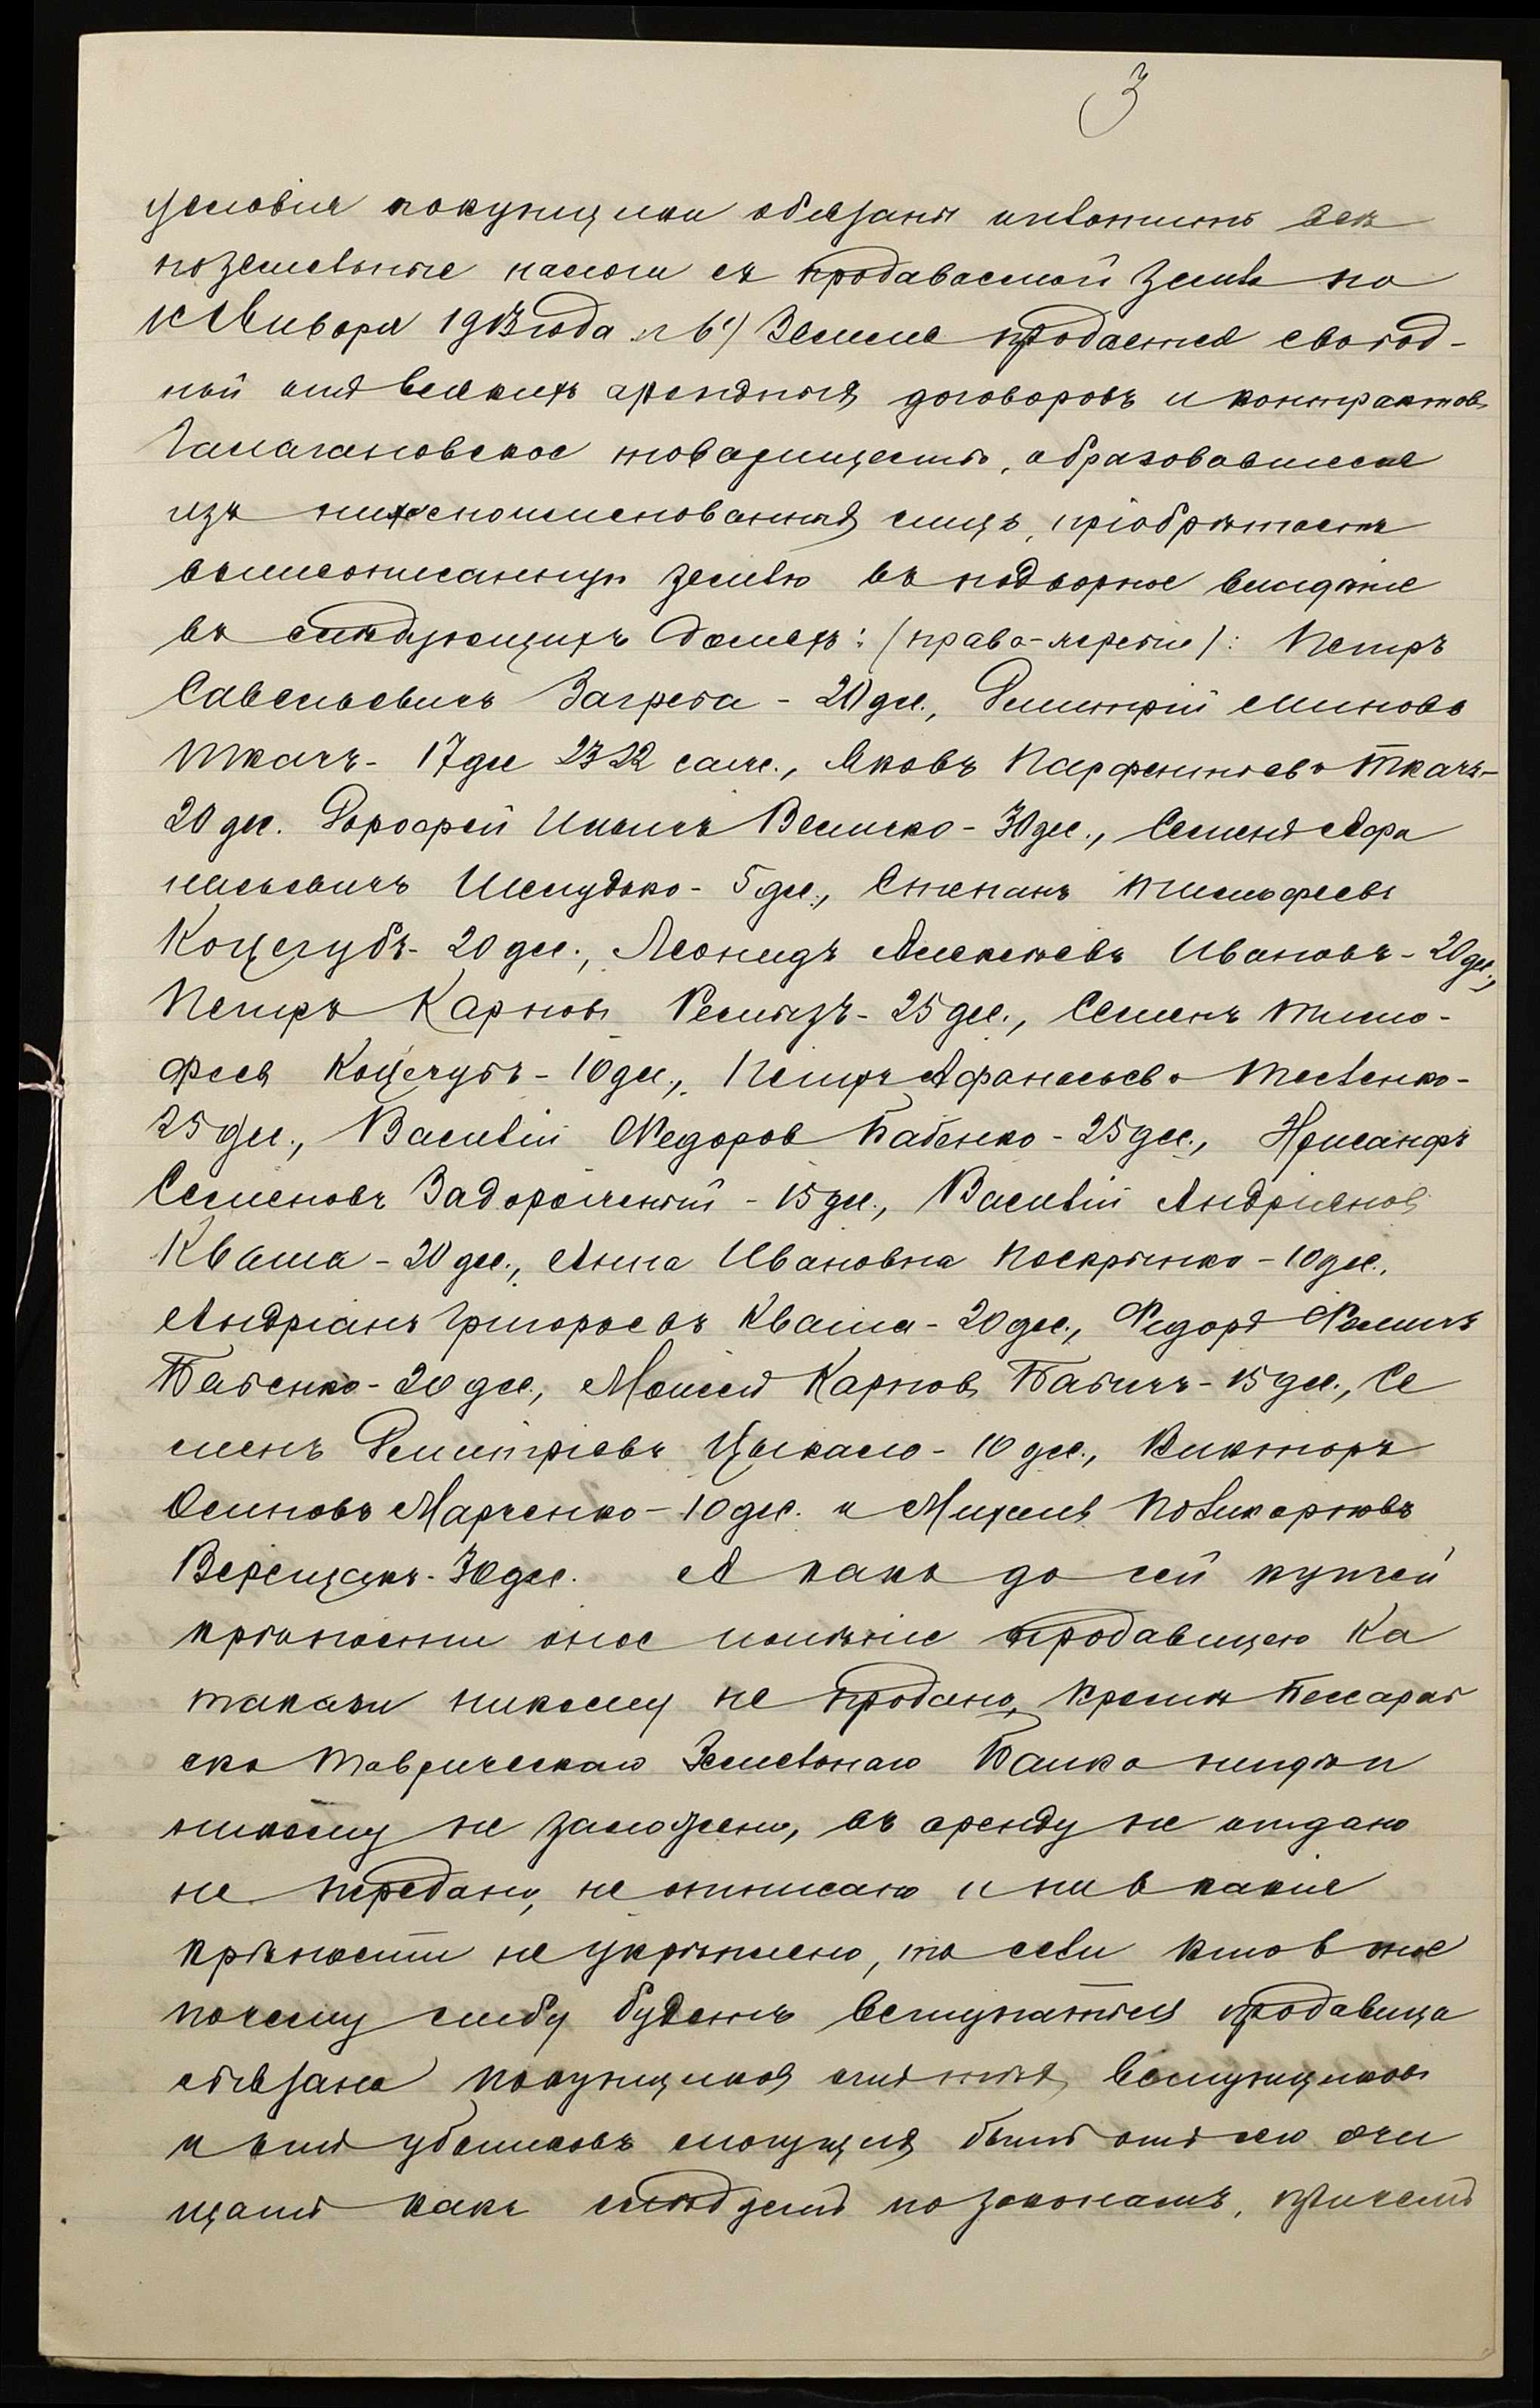 3
условія покупщики обязаны платить всѣ
поземельные налоги съ продаваемой земли по
1е Января 1913 года п 6) Земля продается свобод-
ной отъ всякихъ арендныхъ договоровъ и контрактовъ
Галагановское товарищество, образовавшееся
изъ нижепоименованныхъ лицъ, пріобрѣтаетъ
вышеописанную землю въ подворное владѣніе
въ слѣдующихъ доляхъ: (права-мереніе): Петръ
Савельевичъ Загреба - 20 дес., Дмитрій Миновъ
Ткачъ - 17 дес 2322 саж., Яковъ Парфентьевъ Ткачъ -
20 дес. Дорофей Ильичъ Величко - 30 дес., Семенъ Афа
насьевичъ Шелудько - 5 дес., Степанъ Тимофеевъ
Коцегубъ - 20 дес., Леонидъ Алексѣевъ Ивановъ - 20 дес.,
Петръ Карповъ Ремызъ - 25 дес., Семенъ Тимо-
феевъ Коцегубъ - 10 дес., Петръ Афанасьевъ Тесленко -
25 дес., Василій Федоров Бабенко - 25 дес., Хрисанфъ
Семеновъ Задорожный - 15 дес., Василій Андріяновъ
Кваша - 20 дес., Анна Ивановна Поскрыпко - 10 дес.,
Андріанъ Григорьевъ Кваша - 20 дес., Федоръ Фомичъ
Бабенко - 20 дес., Моисей Карповъ Бабичъ - 15 дес., Се
менъ Дмитріевъ Цыкало - 10 дес., Викторъ
Осиповъ Марченко - 10 дес. и Михаилъ Поликарповъ
Верещакъ - 30 дес. А какъ до сей купчей
крѣпости оное имѣніе продавицею Ка
таказы никому не продано, кромѣ Бессараб
ско Таврическаго Земельнаго Банка нигдѣ и
никому не заложено, въ аренду не отдано
не передано, не отписано и ни в какіе
крѣпости не укрѣплено, то если кто в оное
почему либо будетъ вступаться продавица
обязана покупщиковъ отъ тѣхъ вступщиковъ
и отъ убытковъ могущихъ быть отъ сего очи
щать какъ слѣдуетъ по законамъ, причемъ